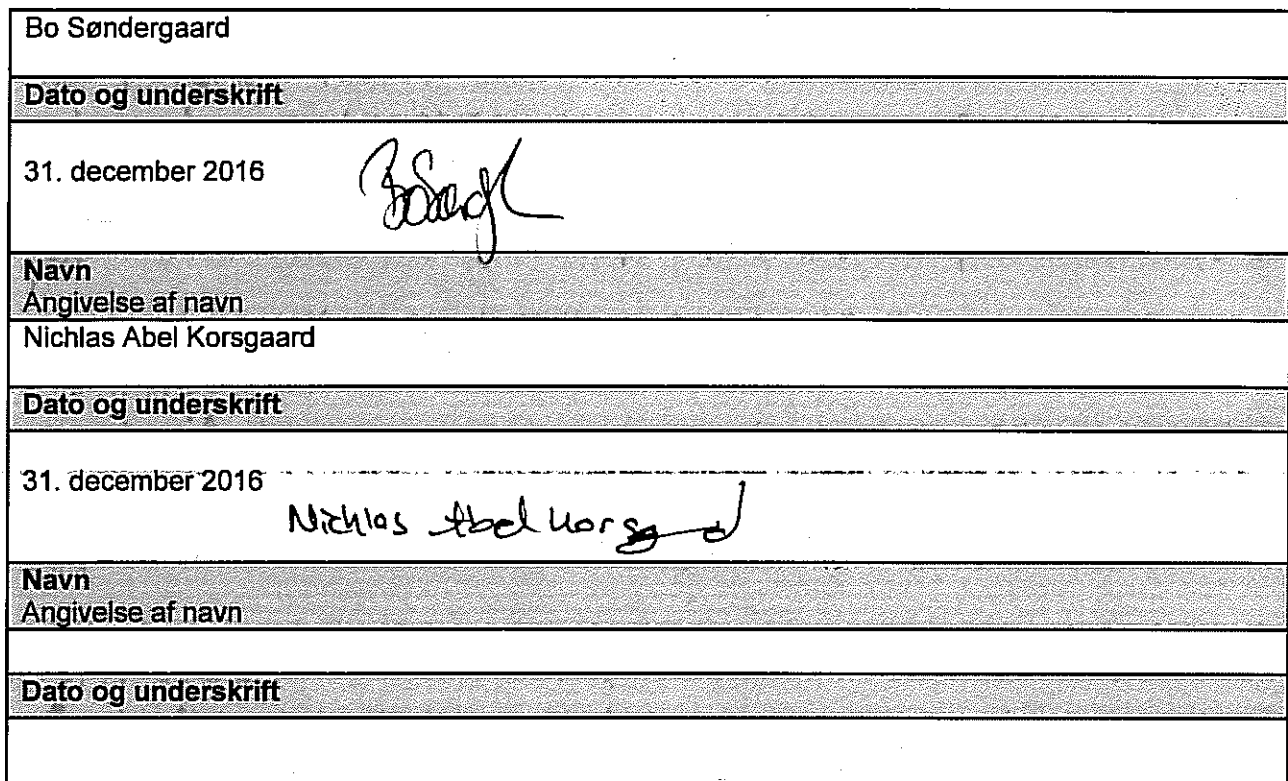 Bo Søndergaard
Dato og underskrift
31. december 2016
Navn
Angivelse af navn
Nichlas Abel Korsgaard
Dato og underskrift
31. december 2016
Nichlas Abel Korsgaard
Navn
Angivelse af navn
Dato og underskrift